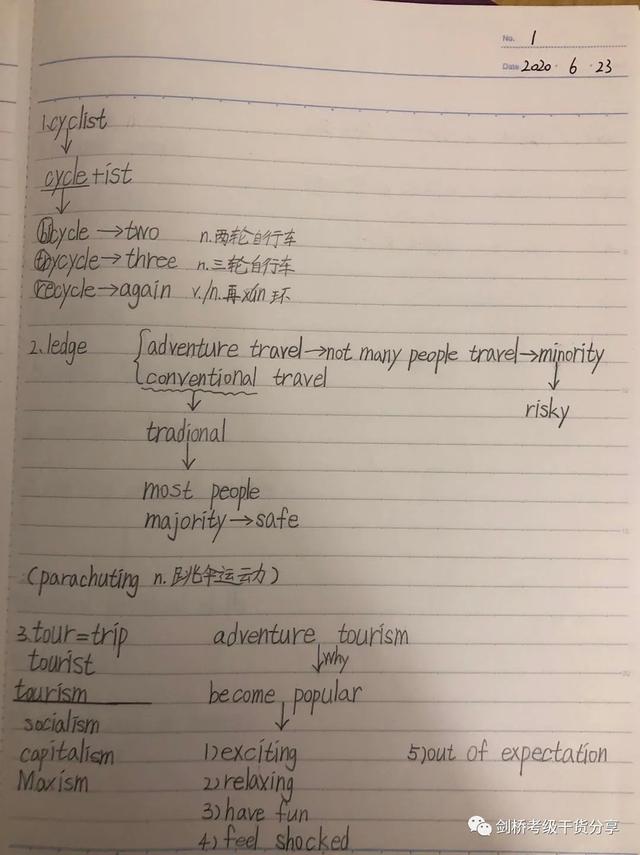 No. 1
Date 2020 · 6 · 23
1.cyclist
cycle+ist
bicycle→two n.两轮自行车
trycycle→three n.三轮自行车
recycle→again v./n.再xún环
2.ledge {adventure travel→not many people travel→minority
conventional travel
risky
tradional
most people
majority→safe
(parachuting n.跳伞运动)
3.tour=trip adventure tourism
tourist why
tourism become popular
socialism
capitalism 1)exciting 5)out of expectation
Maxism 2)relaxing
3)have fun
4)feel shocked
剑桥考级干货分享